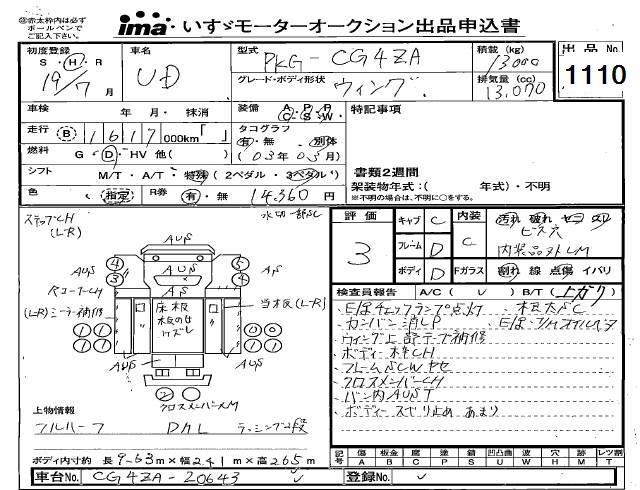 ㊟赤太枠内は必ず
ボールペンで
ご記入下さい。
ima いすゞモーターオークション出品申込書
初度登録
S・H・R
19年7月
車名
UD
型式
PKG-CG4ZA
積載 (kg)
13000
グレード・ボディ形状
ウィング
排気量 (cc)
13,070
出品No.
1110
車検 年 月・抹消
装備 A・P・P C・S・W
特記事項
走行 B 1617 000km「 」
タコグラフ
有・無 別体
(03年03月)
燃料 G・D・HV 他( )
シフト M/T・A/T・特殊(2ペダル・3ペダル)
書類2週間
架装物年式:( 年式)・不明
※不明の場合は、不明に○をする。
色 (指定) R券 有・無 14,360円
ステップCH
(L-R)
水切一部SC
評価
3
キャブ C
フレーム D
ボディ D
内装
C
Fガラス
汚れ 破れ セコ スリ
ビス穴
内装品外しM
割れ 線 点傷 イバリ
検査員報告 A/C( ) B/T(上がり)
Eぽチェックランプ点灯
カンバン消しP
ウィング上部テープ補修
ボディー枠CH
フレームSCWヤセ
クロスメンバーCH
バン内AUST
ボディースベリ止めあまり
RコーナーCH
(L-R)ミラー補修
床板
板のせ
ウズレ
当板(L-R)
クロスメンバーM
上物情報
フルハーフ DHL ラッシング2段
ボディ内寸約 長9-63m×幅2.41m×高265m
記号
傷 板金 凹 塗 錆 凹凸曲 波 穴 跡 レツ割
A B C P S U W H M T
車台No. CG4ZA-20643
登録No.